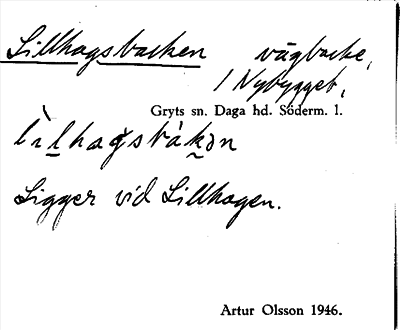 Lillhagsbacken vägbacke,
/ Nybygget,
Gryts sn. Daga hd. Söderm. l.
lìlhagsbákən
Ligger vid Lillhagen.
Artur Olsson 1946.